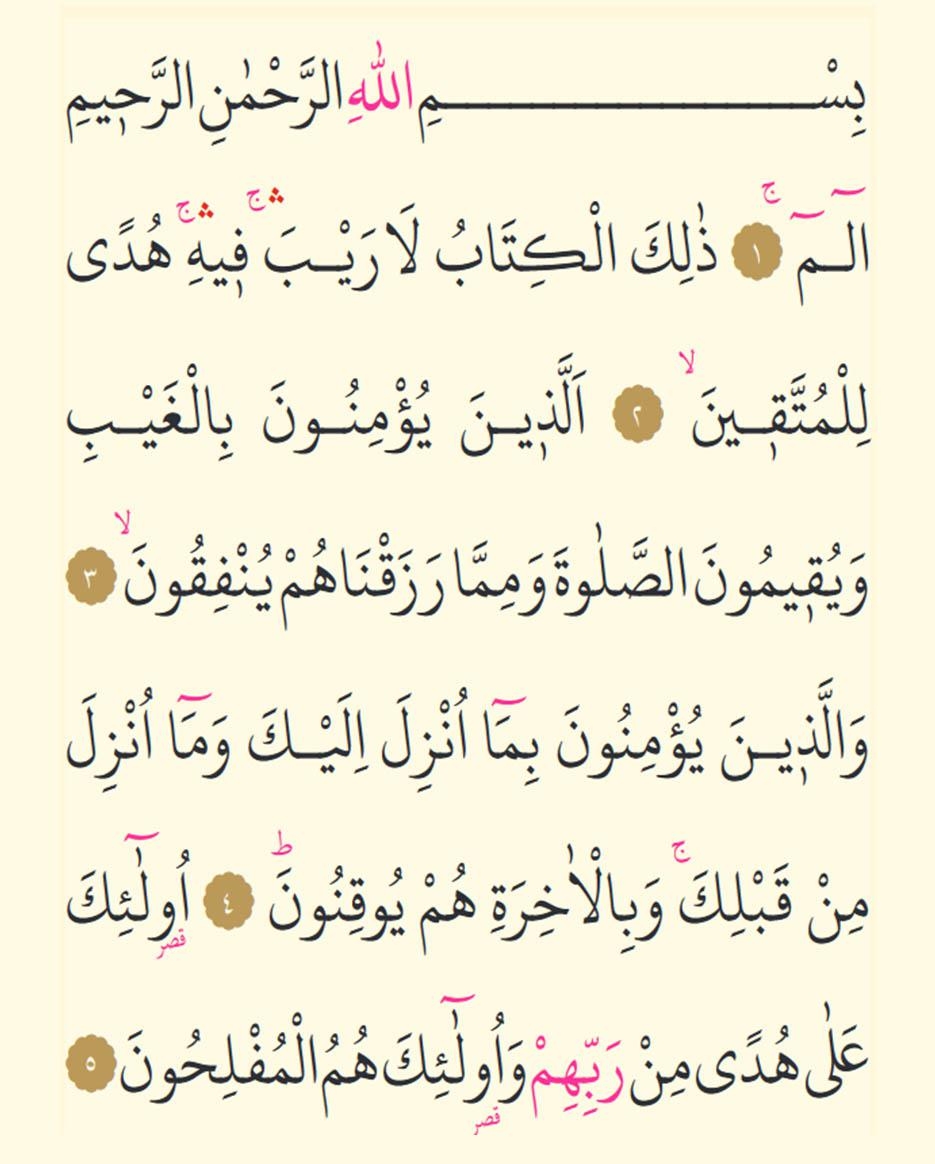 بِسْمِ اللّٰهِ الرَّحْمٰنِ الرَّح۪يمِ
الٓمٓ ۚ ﴿١﴾ ذٰلِكَ الْكِتَابُ لَا رَيْبَ ۛۚ ف۪يهِ ۛۚ هُدًى
لِلْمُتَّق۪ينَ ۙ ﴿٢﴾ اَلَّذ۪ينَ يُؤْمِنُونَ بِالْغَيْبِ
وَيُق۪يمُونَ الصَّلٰوةَ وَمِمَّا رَزَقْنَاهُمْ يُنْفِقُونَ ۙ ﴿٣﴾
وَالَّذ۪ينَ يُؤْمِنُونَ بِمَٓا اُنْزِلَ اِلَيْكَ وَمَٓا اُنْزِلَ
مِنْ قَبْلِكَ ۚ وَبِالْاٰخِرَةِ هُمْ يُوقِنُونَ ؕ ﴿٤﴾ اُو۬لٰٓئِكَ
قصر
عَلٰى هُدًى مِنْ رَبِّهِمْ وَاُو۬لٰٓئِكَ هُمُ الْمُفْلِحُونَ ﴿٥﴾
قصر